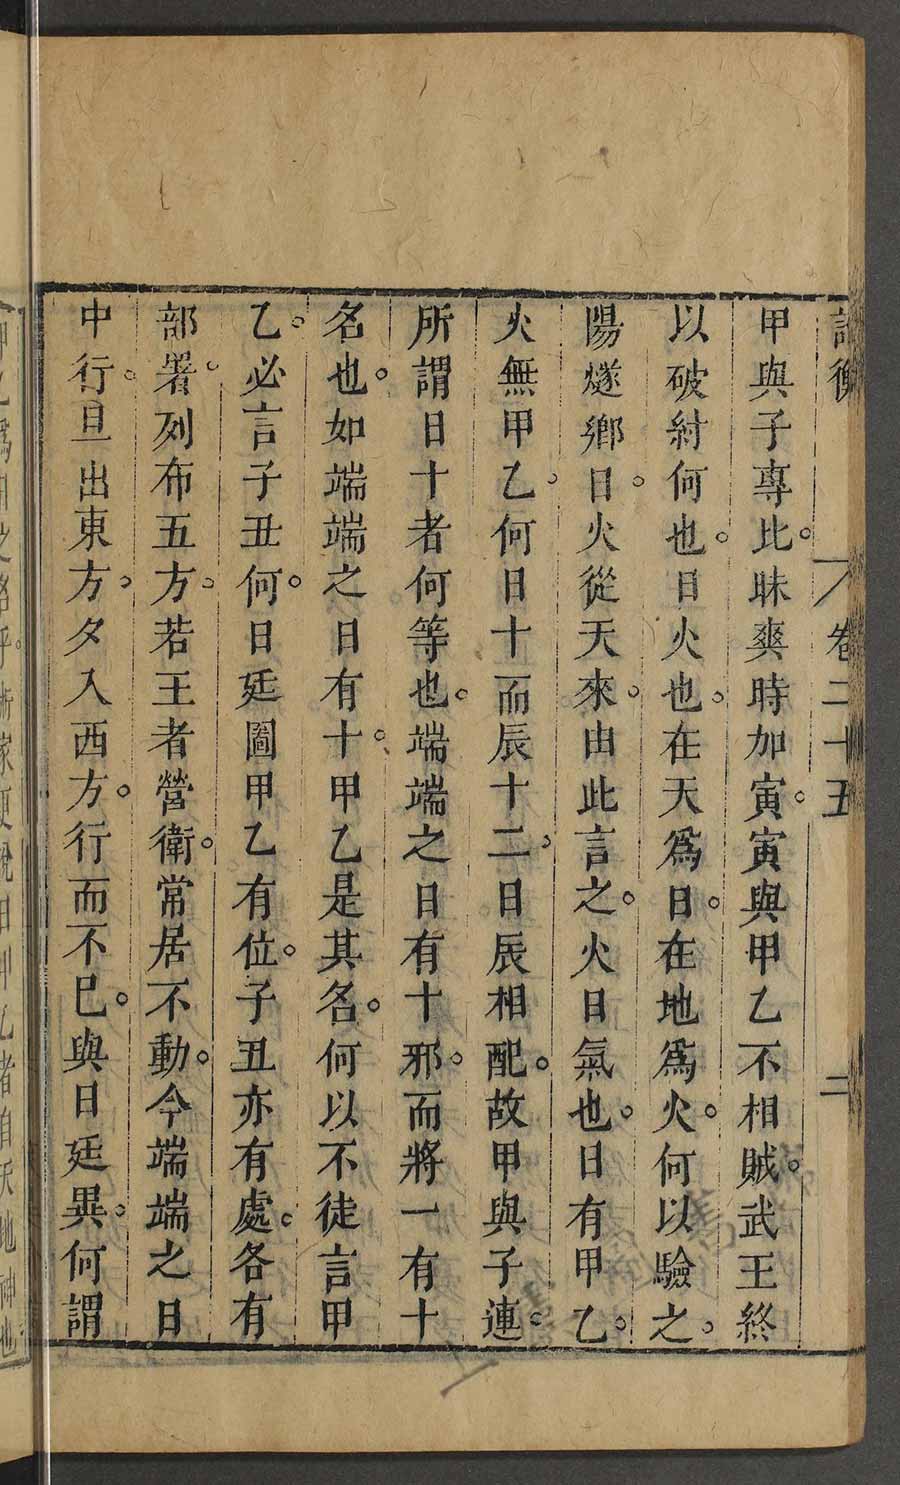 論衡 卷二十五 二
甲與子專比。昧爽時加寅。寅與甲乙不相賊。武王終
以破紂何也。日火也。在天爲日。在地爲火。何以驗之。
陽燧鄉日。火從天來。由此言之。火日氣也。日有甲乙。
火無甲乙。何日十而辰十二。日辰相配。故甲與子連。
所謂日十者何等也。端端之日有十邪。而將一有十
名也。如端端之日有十。甲乙是其名。何以不徒言甲
乙。必言子丑何。日廷圖甲乙有位。子丑亦有處。各有
部署。列布五方。若王者營衛。常居不動。今端端之日
中行。旦出東方。夕入西方。行而不已。與日廷異。何謂